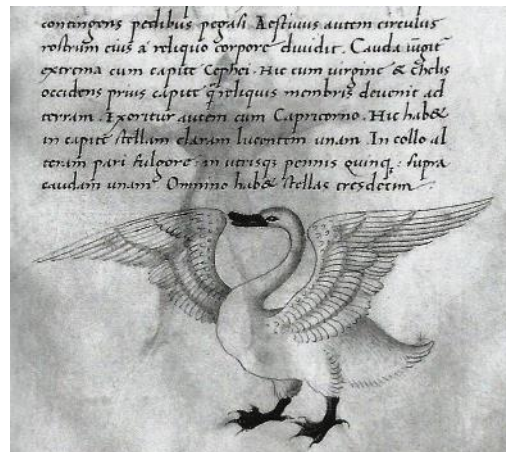 contingens pedibus pegasi. Aestiuus autem circulus
rostrum eius a reliquo corpore diuidit. Cauda iũgit
extrema cum capite Cephei. Hic cum uirgine & chelis
occidens prius capite q̃ reliquis membris deuenit ad
terram. Exoritur autem cum Capricorno. Hic hab&
in capite stellam claram lucentem unam. In collo al
teram pari fulgore. in utrisq; pennis quinq;. supra
caudam unam. Omnino hab& stellas tresdecim.